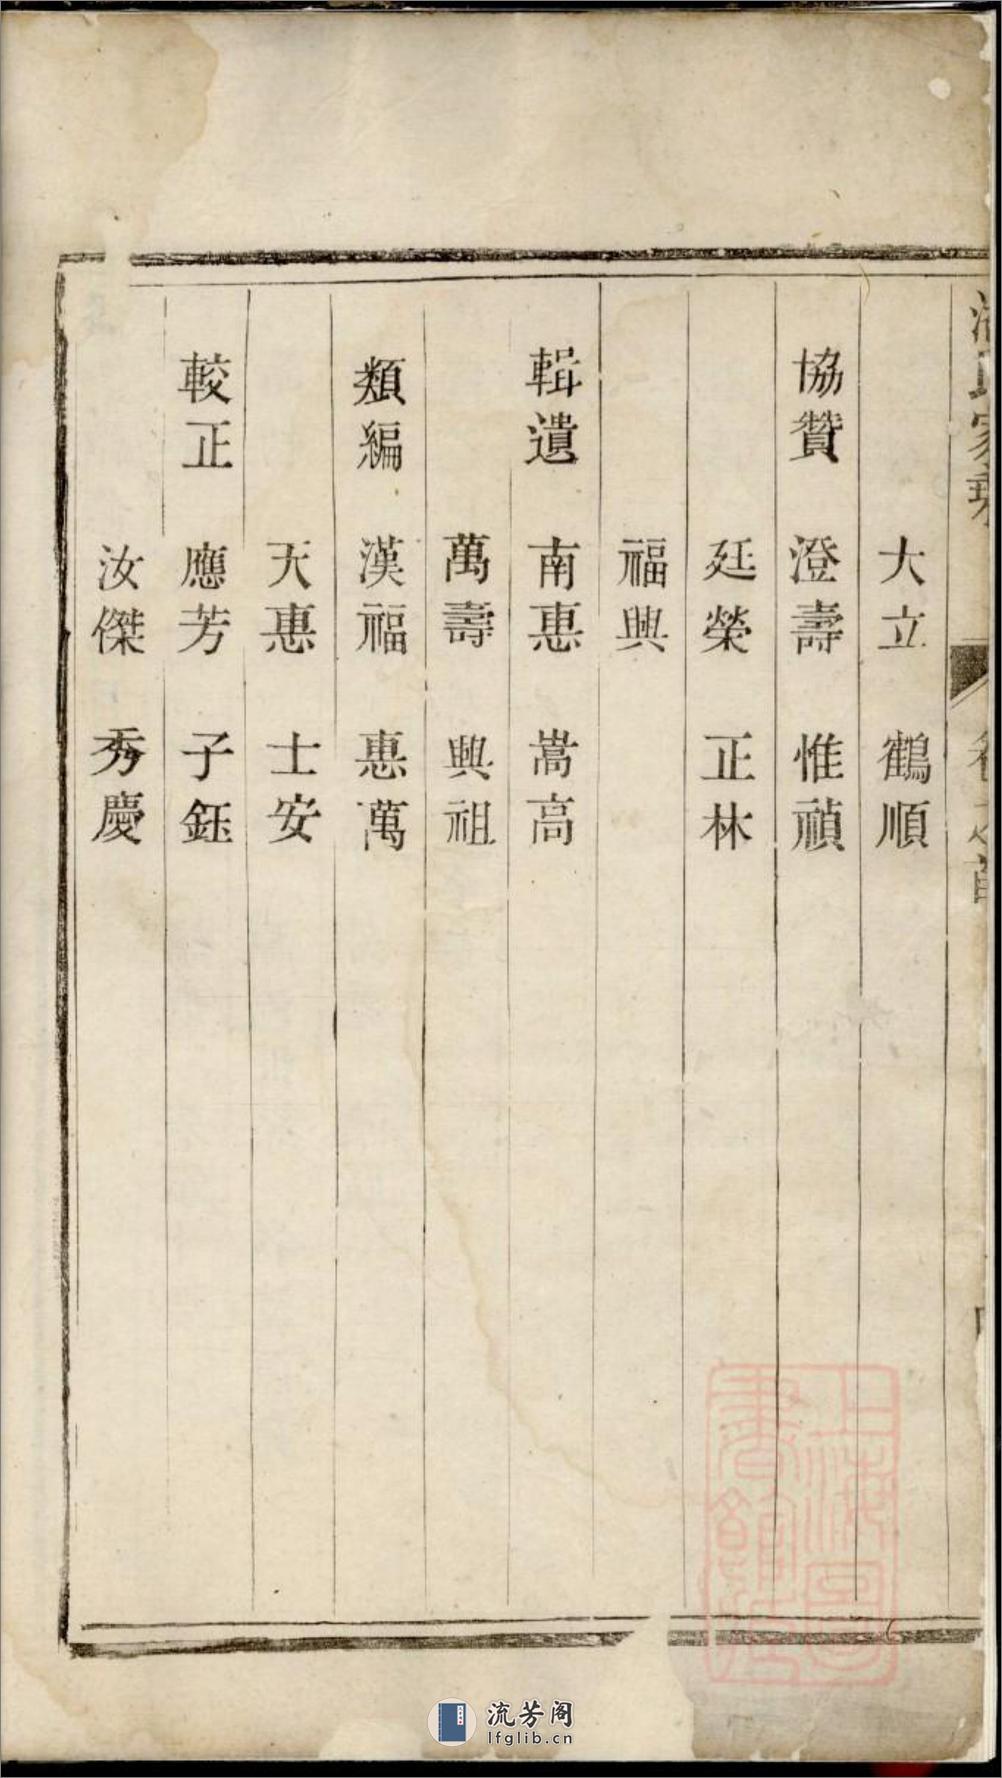 大立 鶴順
協贊 澄壽 惟禎
廷榮 正林
福興
輯遺 南惠 嵩高
萬壽 興祖
類編 漢福 惠萬
天惠 士安
較正 應芳 子鈺
汝傑 秀慶
上海圖書館藏
流芳阁
lfglib.cn